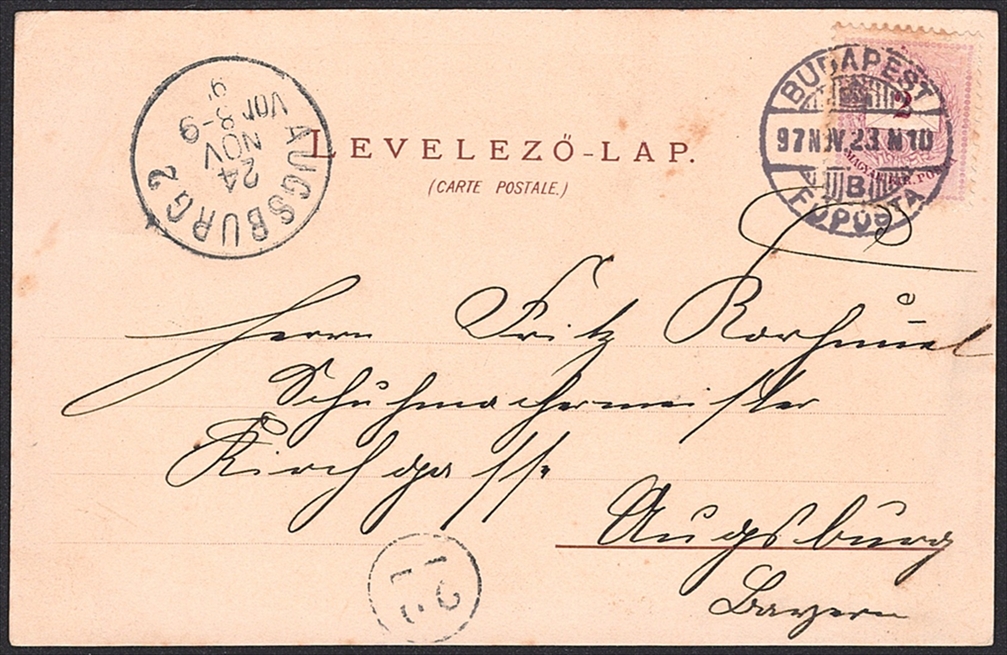 LEVELEZŐ-LAP.
(CARTE POSTALE.)
AUGSBURG 2
24
NOV
VOR 8-9
BUDAPEST
97 NOV. 23 N 10
B
FŐPOSTA
2
MAGYAR KIR. POSTA
Herrn Fritz
Schuhmachermeister
Kirchgasse
Augsburg
Bayern